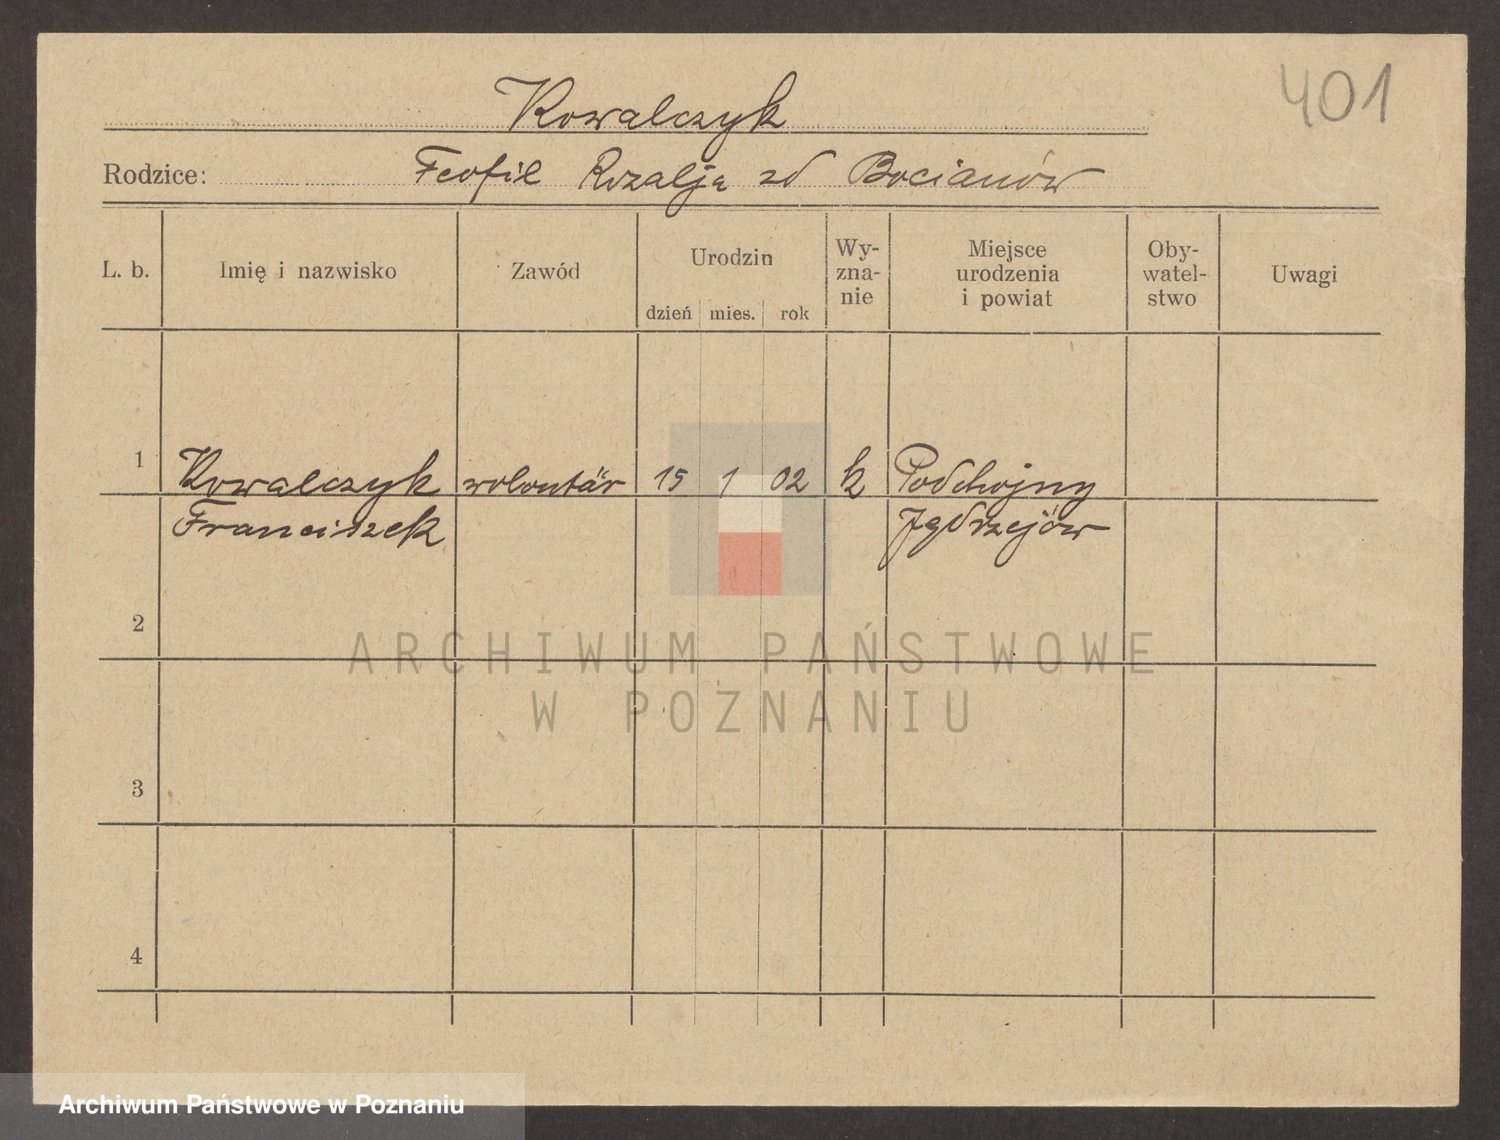 401
Kowalczyk
Rodzice: Teofil Rozalja zd Bocianów
L. b. Imię i nazwisko Zawód Urodzin Wy- Miejsce Oby- Uwagi
zna- urodzenia watel-
nie i powiat stwo
dzień mies. rok
1 Kowalczyk wolontär 15 1 02 k Podchojny
Franciszek Jędrzejów
2
ARCHIWUM PAŃSTWOWE
W POZNANIU
3
4
Archiwum Państwowe w Poznaniu